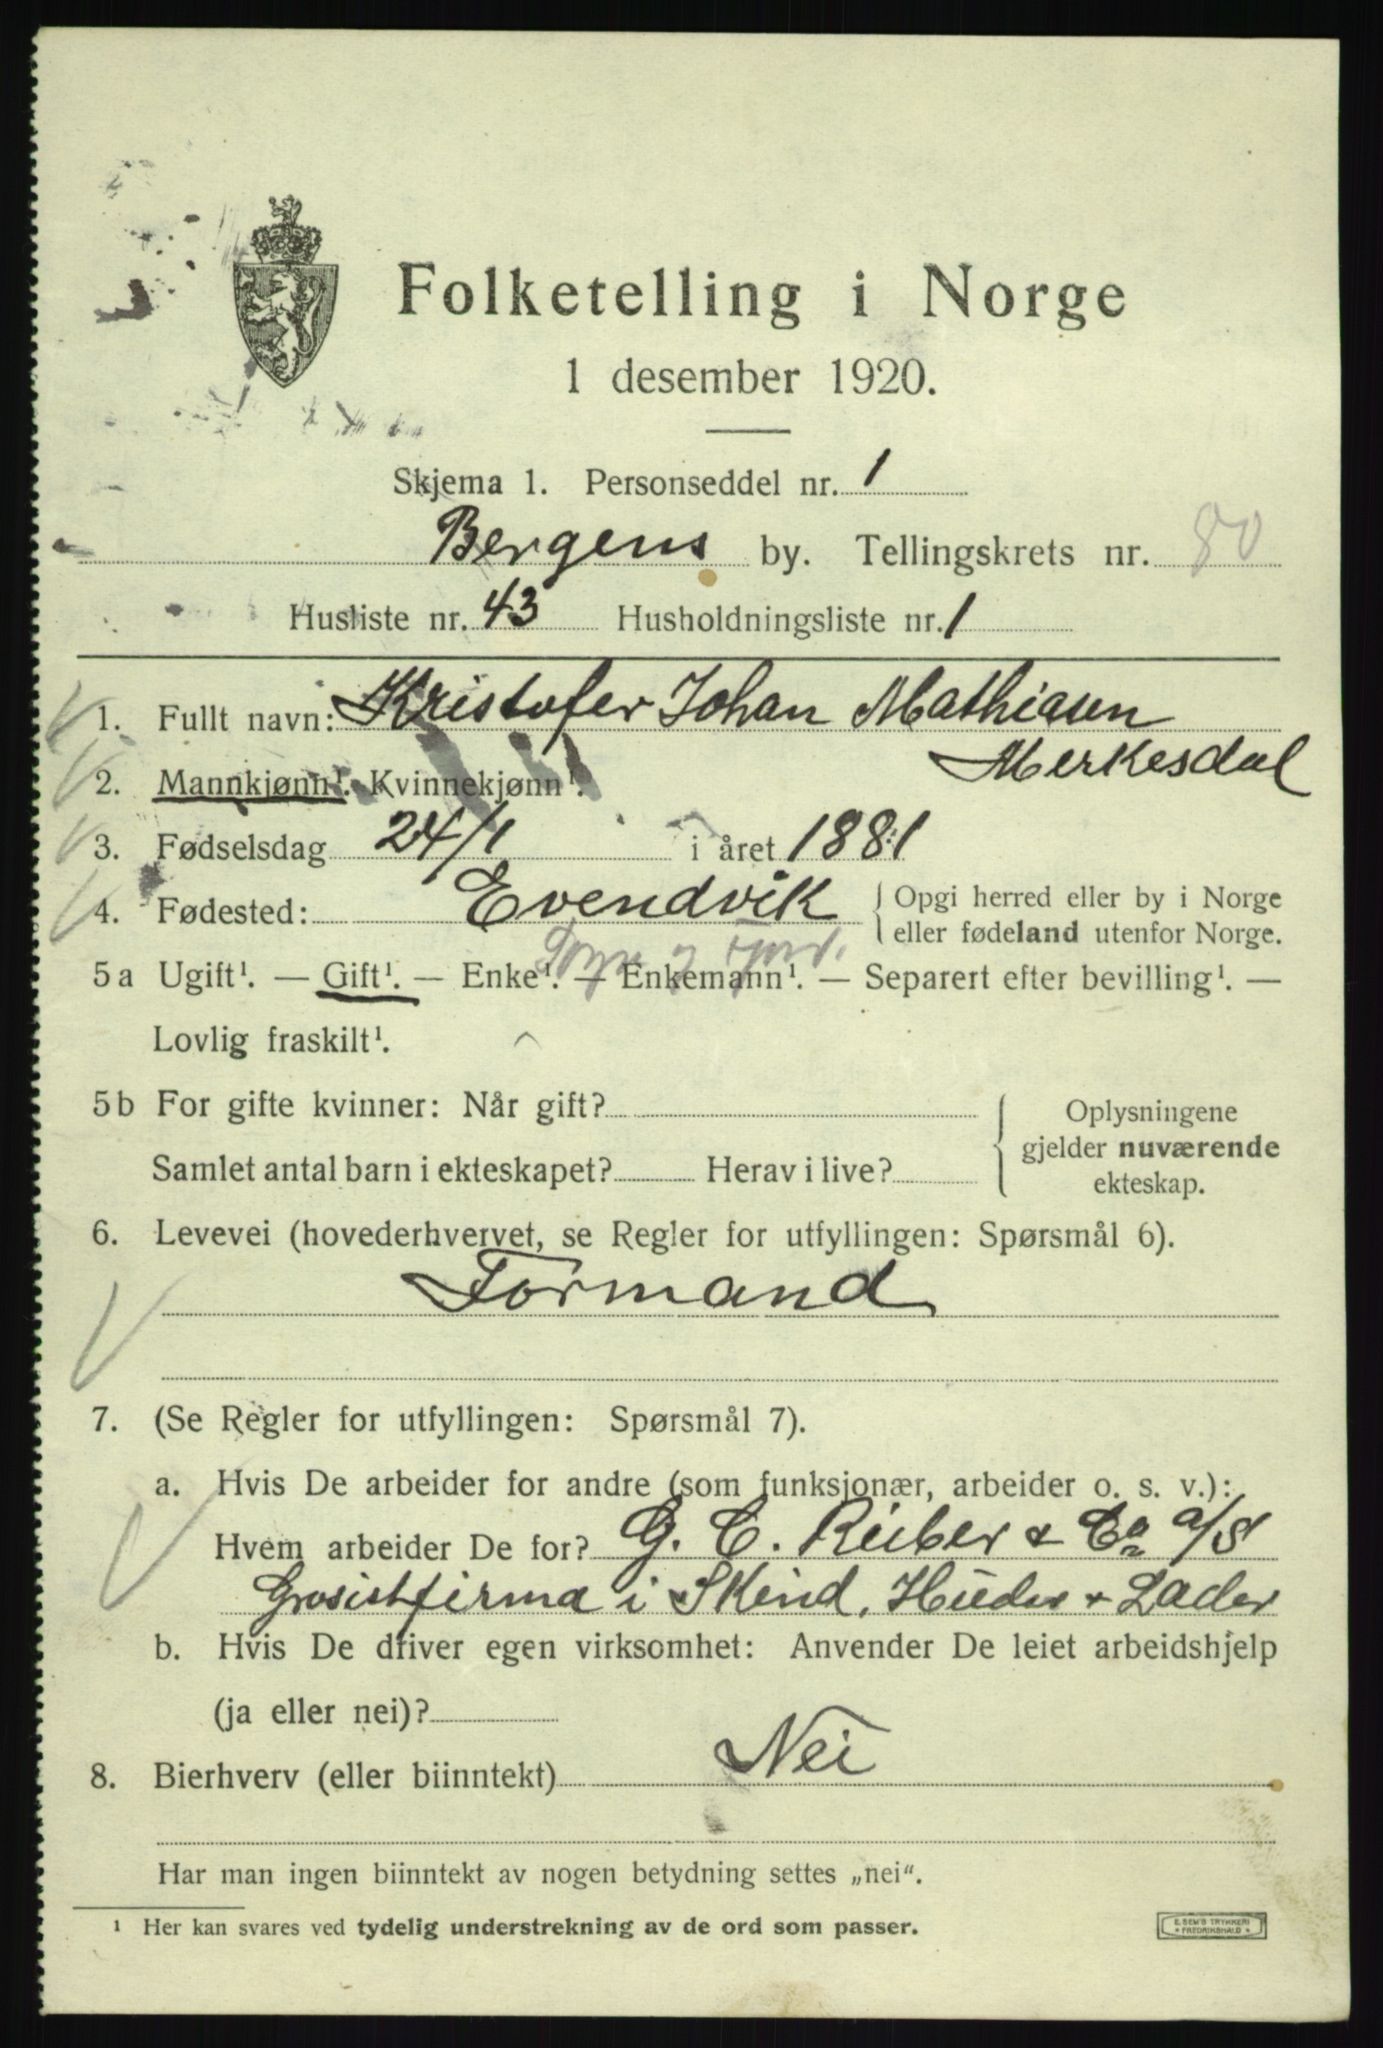 Folketelling i Norge
1 desember 1920.
Skjema 1. Personseddel nr. 1
Bergens by. Tellingskrets nr. 80
Husliste nr. 43 Husholdningsliste nr. 1
1. Fullt navn: Kristofer Johan Mathiasen
Merkesdal
2. Mannkjønn¹. Kvinnekjønn¹.
3. Fødselsdag 24/1 i året 1881
4. Fødested: Evendvik { Opgi herred eller by i Norge
eller fødeland utenfor Norge.
Sogn og Fjord.
5a Ugift¹. — Gift¹. — Enke¹. — Enkemann¹. — Separert efter bevilling¹. —
Lovlig fraskilt¹.
5b For gifte kvinner: Når gift? { Oplysningene
gjelder nuværende
Samlet antal barn i ekteskapet? Herav i live?
ekteskap.
6. Levevei (hovederhvervet, se Regler for utfyllingen: Spørsmål 6).
Formand
7. (Se Regler for utfyllingen: Spørsmål 7).
a. Hvis De arbeider for andre (som funksjonær, arbeider o. s. v.):
Hvem arbeider De for? G. C. Rieber & Co a/S
Grosistfirma i Skind, Huder & Lader
b. Hvis De driver egen virksomhet: Anvender De leiet arbeidshjelp
(ja eller nei)?
8. Bierhverv (eller biinntekt) Nei
Har man ingen biinntekt av nogen betydning settes „nei“.
¹ Her kan svares ved tydelig understrekning av de ord som passer.
E. SEM'S TRYKKERI
* FREDRIKSHALD *